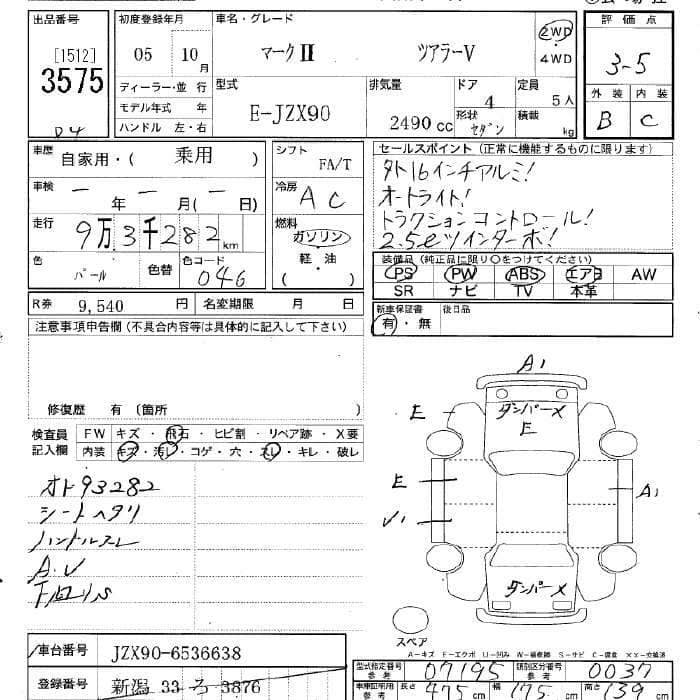 出品番号
[1512]
3575
初度登録年月
05 10月
ディーラー・並行
モデル年式 年
ハンドル 左・右
車名・グレード
マークⅡ ツアラーV
2WD
4WD
型式
E-JZX90
排気量
2490cc
ドア
4
形状
セダン
定員
5人
積載
kg
評価点
3-5
外装 内装
B C
車歴
自家用・( 乗用 )
車検
ー年ー月(ー日)
走行
9万3千282km
色
パール
色替
色コード
046
シフト
FA/T
冷房
AC
燃料
ガソリン
・
軽・油
( )
セールスポイント (正常に機能するものに限ります)
タト16インチアルミ!
オートライト!
トラクションコントロール!
2.5ℓツインターボ!
装備品 (純正品に限り○をつけてください)
PS PW ABS エアB AW
SR ナビ TV 本革
R券 9,540 円
名変期限 月 日
新車保証書
有・無
後日品
注意事項申告欄 (不具合内容等は具体的に記入して下さい)
修復歴 有 (箇所 )
検査員
記入欄
FW キズ・飛石・ヒビ割・リペア跡・X要
内装 キズ・汚レ・コゲ・穴・スレ・キレ・破レ
オド93282
シートヘタリ
ハンドルスレ
A.V
A1
E
ダンパーX
E
E
√1
A1
ダンパーX
スペア
A-キズ E-エクボ U-凹み W-補修跡 S-サビ C-腐食 XX-交換済
車台番号
JZX90-6536638
登録番号
新潟 33 ろ 3876
型式指定番号
参考
07195
類別区分番号
参考
0037
車車証明用
参考
長さ 475cm 幅 175cm 高さ 139cm